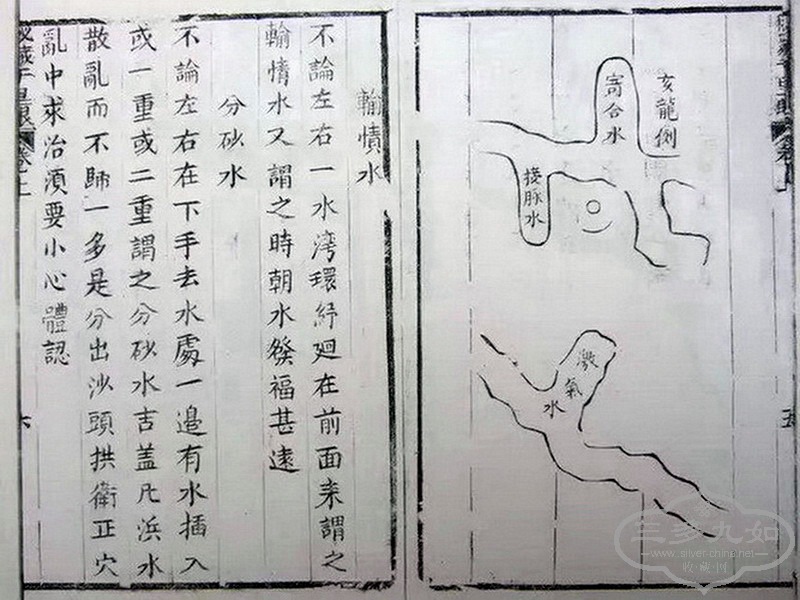 亥龍
寄合水
接脉水
激氣水
五
輸情水
不論左右一水湾環紆廻在前面来謂之
輸情水又謂之時朝水發福甚遠
分砂水
不論左右在下手去水處一邉有水插入
或一重或二重謂之分砂水吉盖凢浜水
散亂而不㱕一多是分出沙頭拱衛正穴
亂中求治須要小心體認
千里眼
六
三多九如
www.silver-china.net
收·藏·网